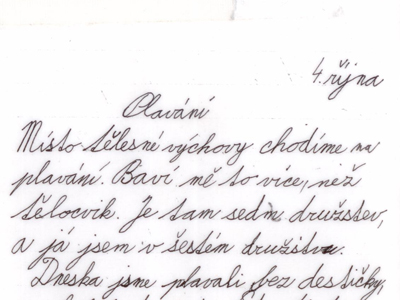 4. října
Plavání
Místo tělesné výchovy chodíme na
plavání. Baví mě to více, než
tělocvik. Je tam sedm družstev,
a já jsem v šestém družstvu.
Dneska jsme plavali bez destičky,